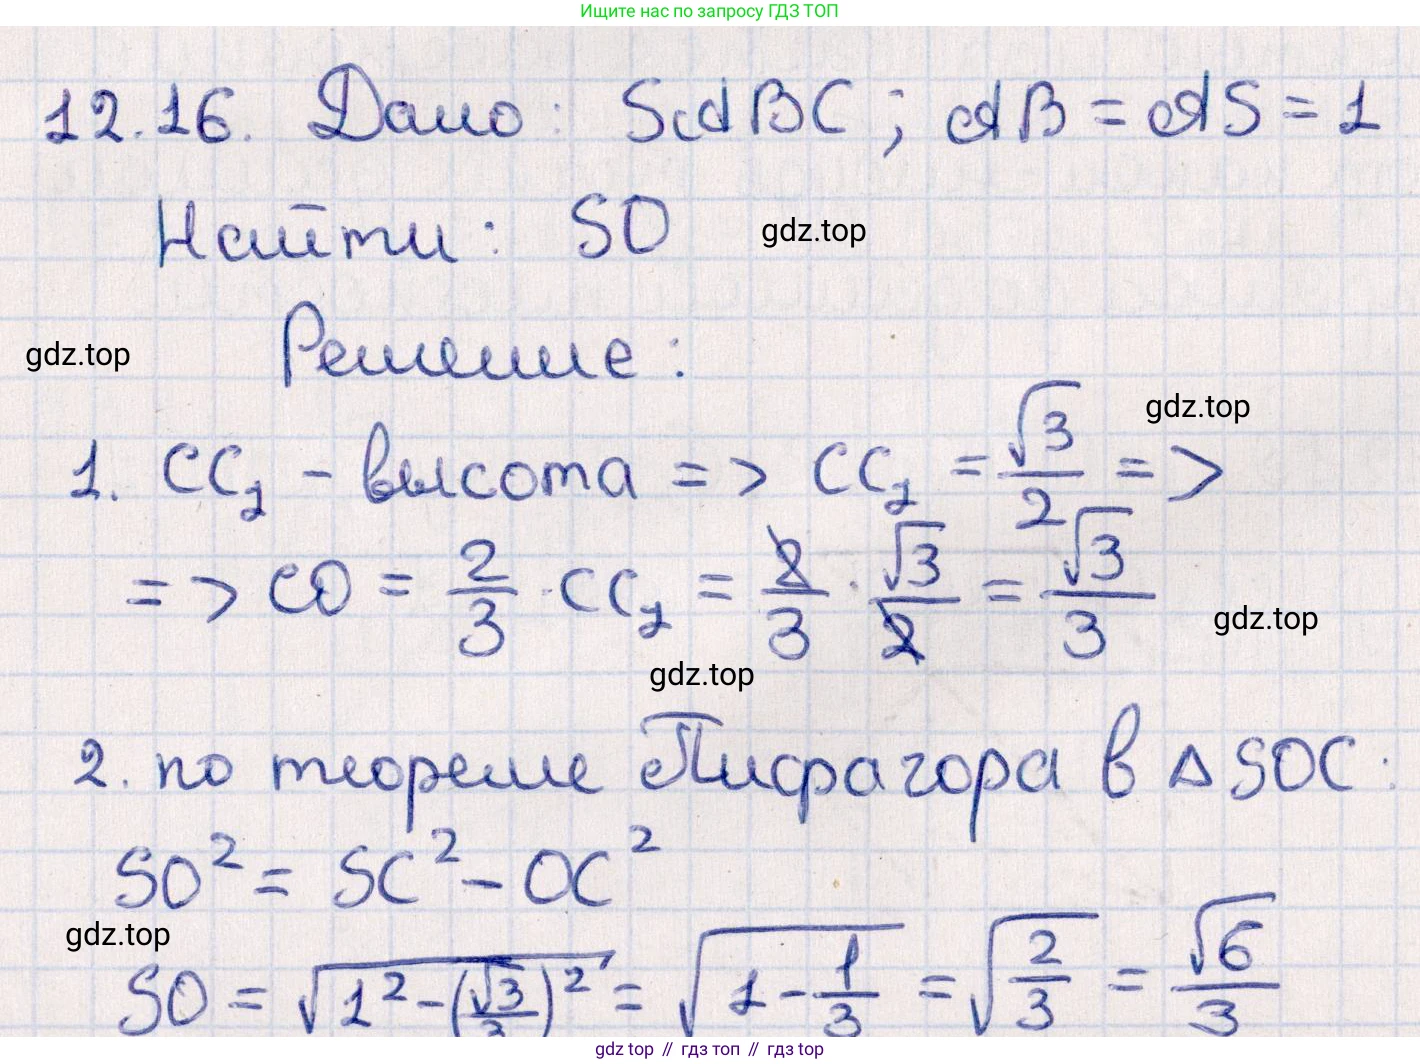 Ищите нас по запросу ГДЗ ТОП
12.16. Дано: SABC; AB = AS = 1
Найти: SO
gdz.top
Решение:
gdz.top
gdz.top
1. CC₁ - высота => CC₁ = √3/2 =>
=> CO = 2/3 · CC₁ = 2/3 · √3/2 = √3/3
gdz.top
gdz.top
2. по теореме Пифагора в △SOC:
SO² = SC² - OC²
gdz.top
SO = √(1² - (√3/3)²) = √(1 - 1/3) = √(2/3) = √6/3
gdz top // гдз топ // gdz top